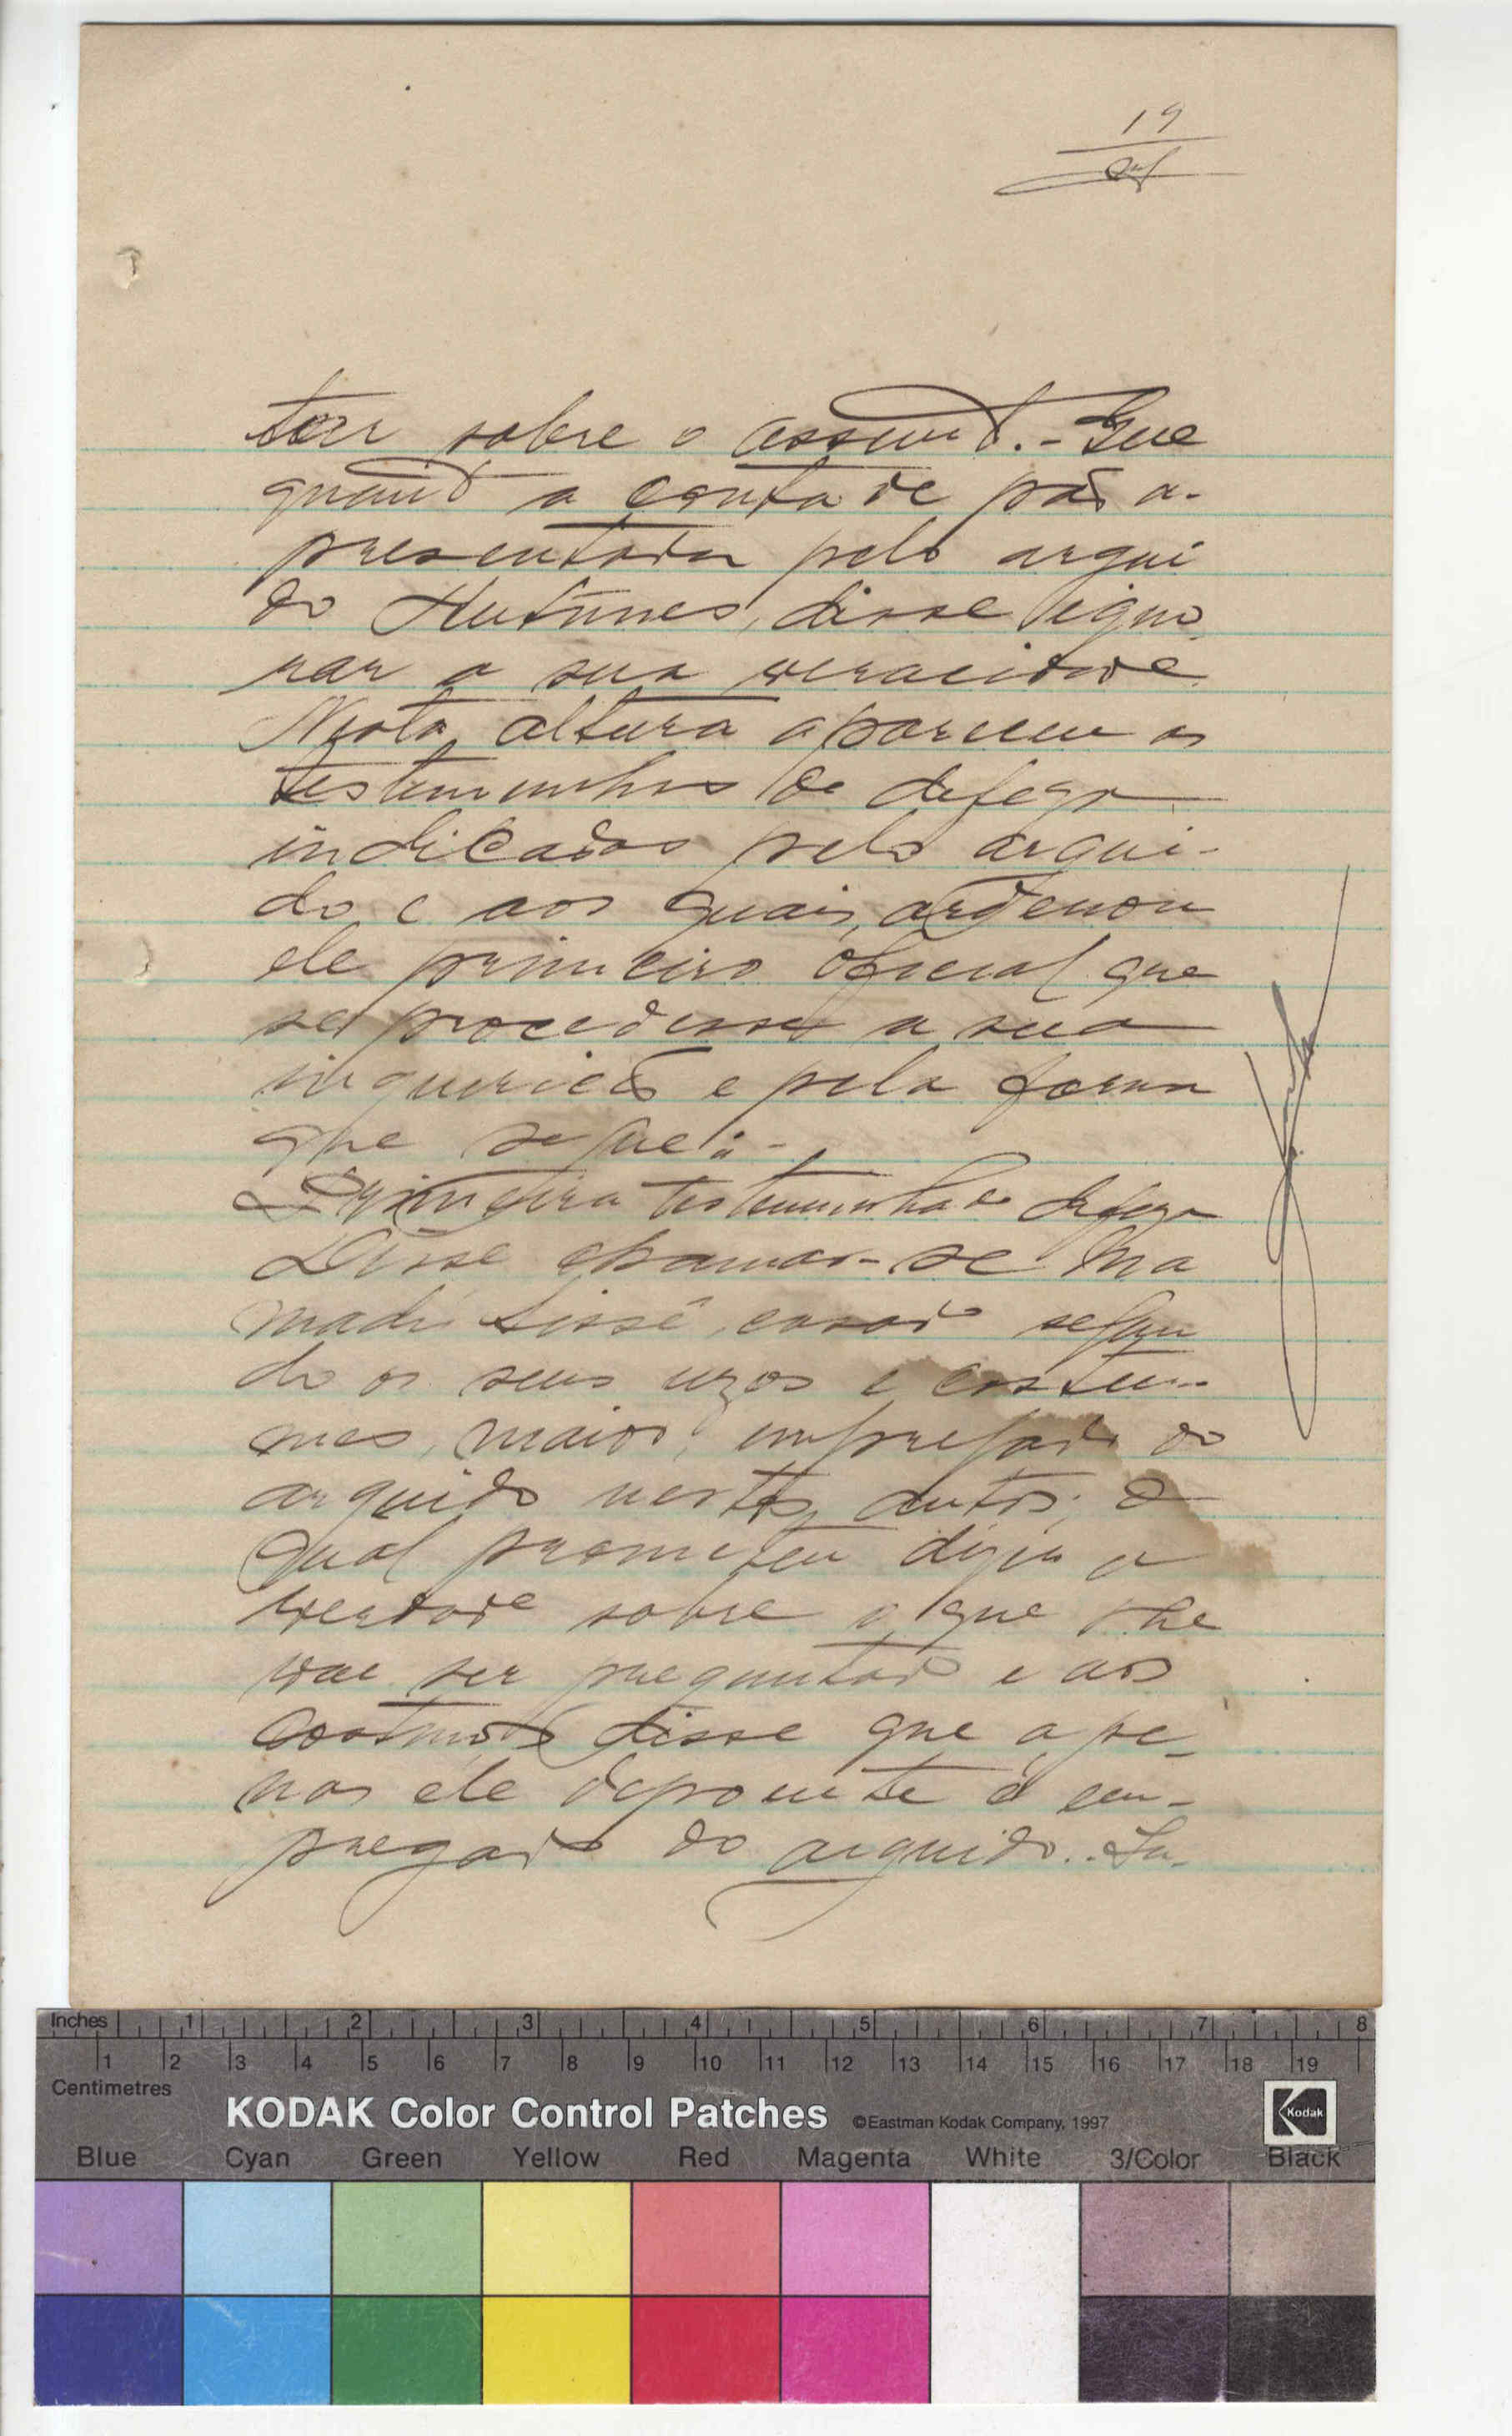 19
tar sobre o assunto.- Que
quanto a conta de pão a-
presentada pelo argui
do Antunes, disse igno
rar a sua veracidade
Nesta altura aparecem as
testemunhas de defeza
indicadas pelo argui-
do e aos quais, ordenou
ele primeiro oficial que
se procedesse a sua
inquerição e pela forma
que segue:-
Primeira testemunha de defeza
Disse chamar-se Ma
madú Sissé, casado segun
do os seus uzos e costu-
mes, maior, empregado do
arguido nestes autos; o
qual prometeu dizer a
verdade sobre o que lhe
vae ser preguntado e aos
costumes disse que ape-
nas ele depoente é em-
pregado do arguido..In-
Inches 1 2 3 4 5 6 7 8
1 2 3 4 5 6 7 8 9 10 11 12 13 14 15 16 17 18 19
Centimetres
KODAK Color Control Patches ©Eastman Kodak Company, 1997 Kodak
Blue Cyan Green Yellow Red Magenta White 3/Color Black